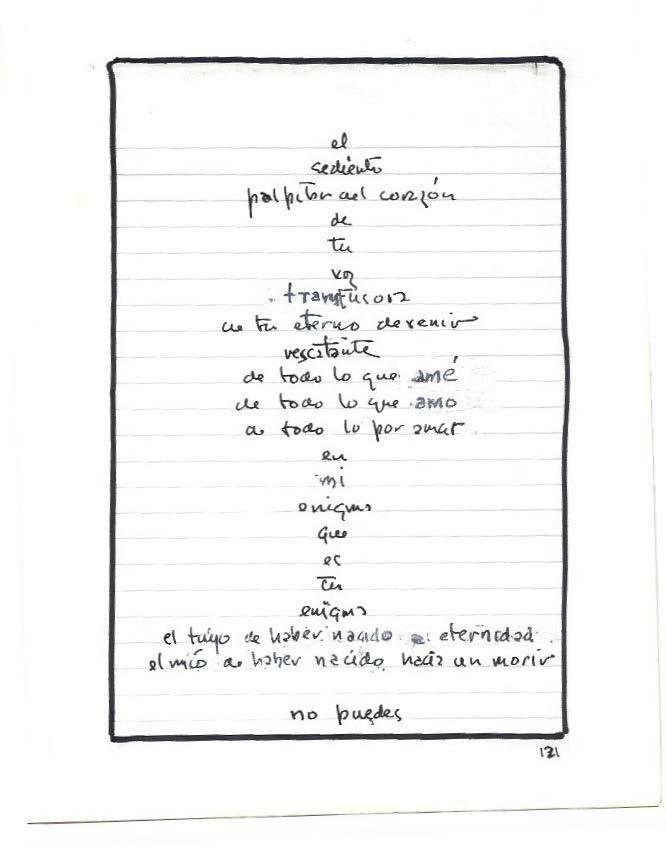 el
sediento
palpitar del corazón
de
tu
voz
transfusora
de tu eterno devenir
rescatante
de todo lo que amé
de todo lo que amo
de todo lo por amar
en
mi
enigma
que
es
tu
enigma
el tuyo de haber nacido eternidad
el mío de haber nacido hacia un morir
no puedes
121